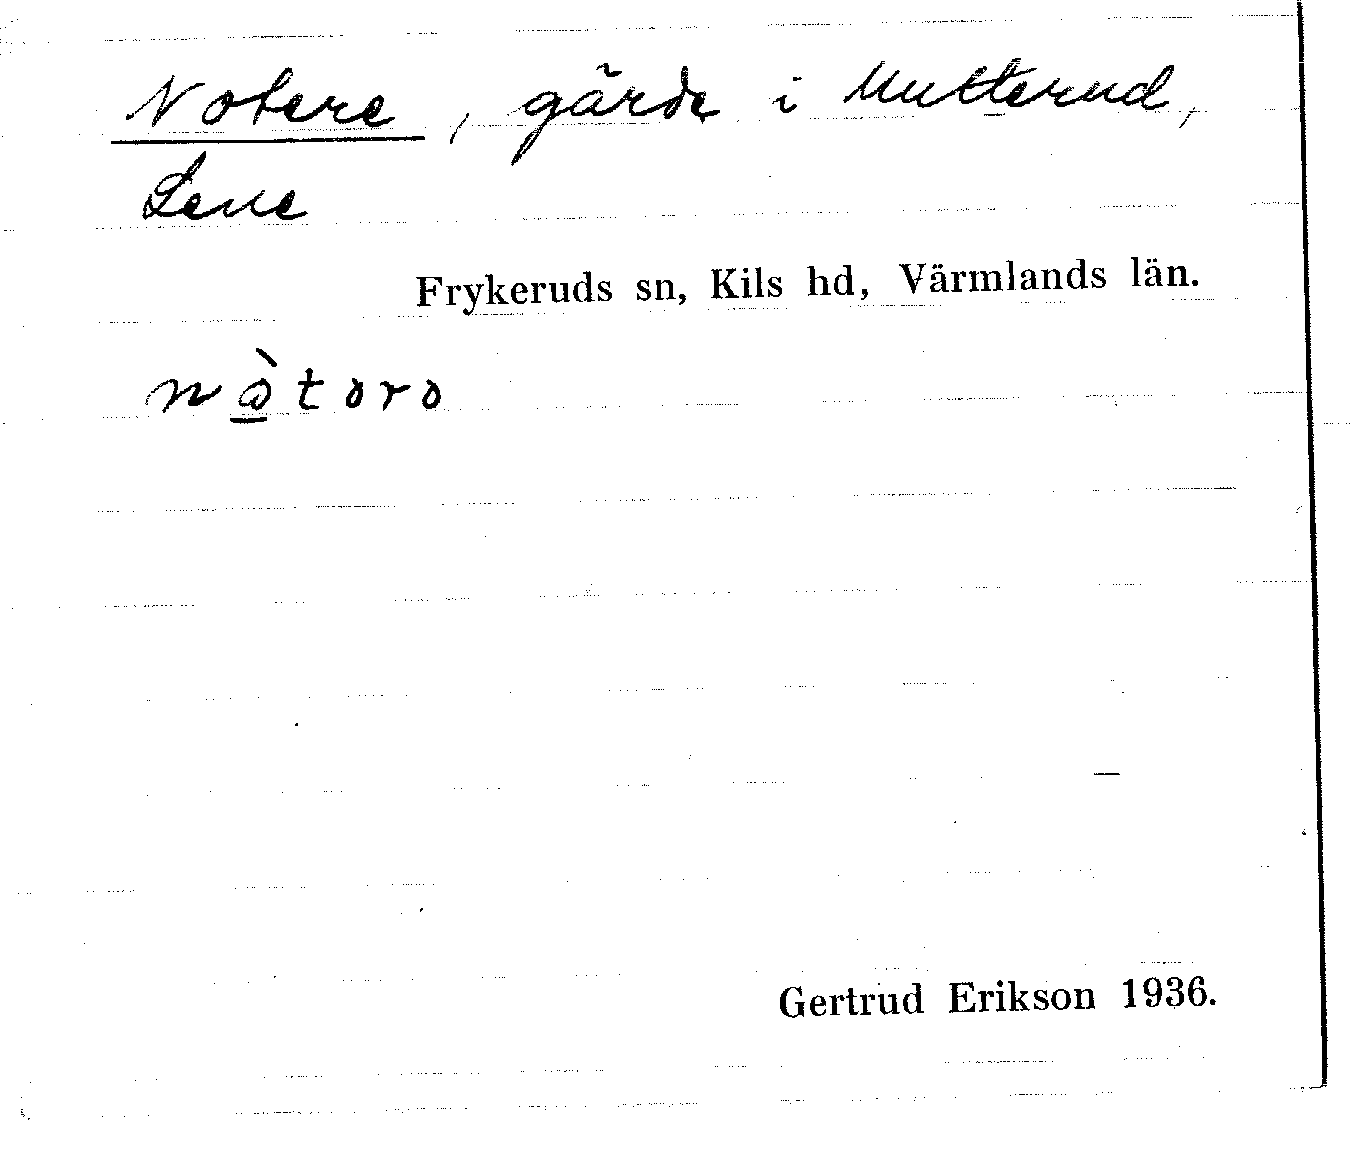 Notere, gärde i Mutterud,
Lene
Frykeruds sn, Kils hd, Värmlands län.
Gertrud Erikson 1936.